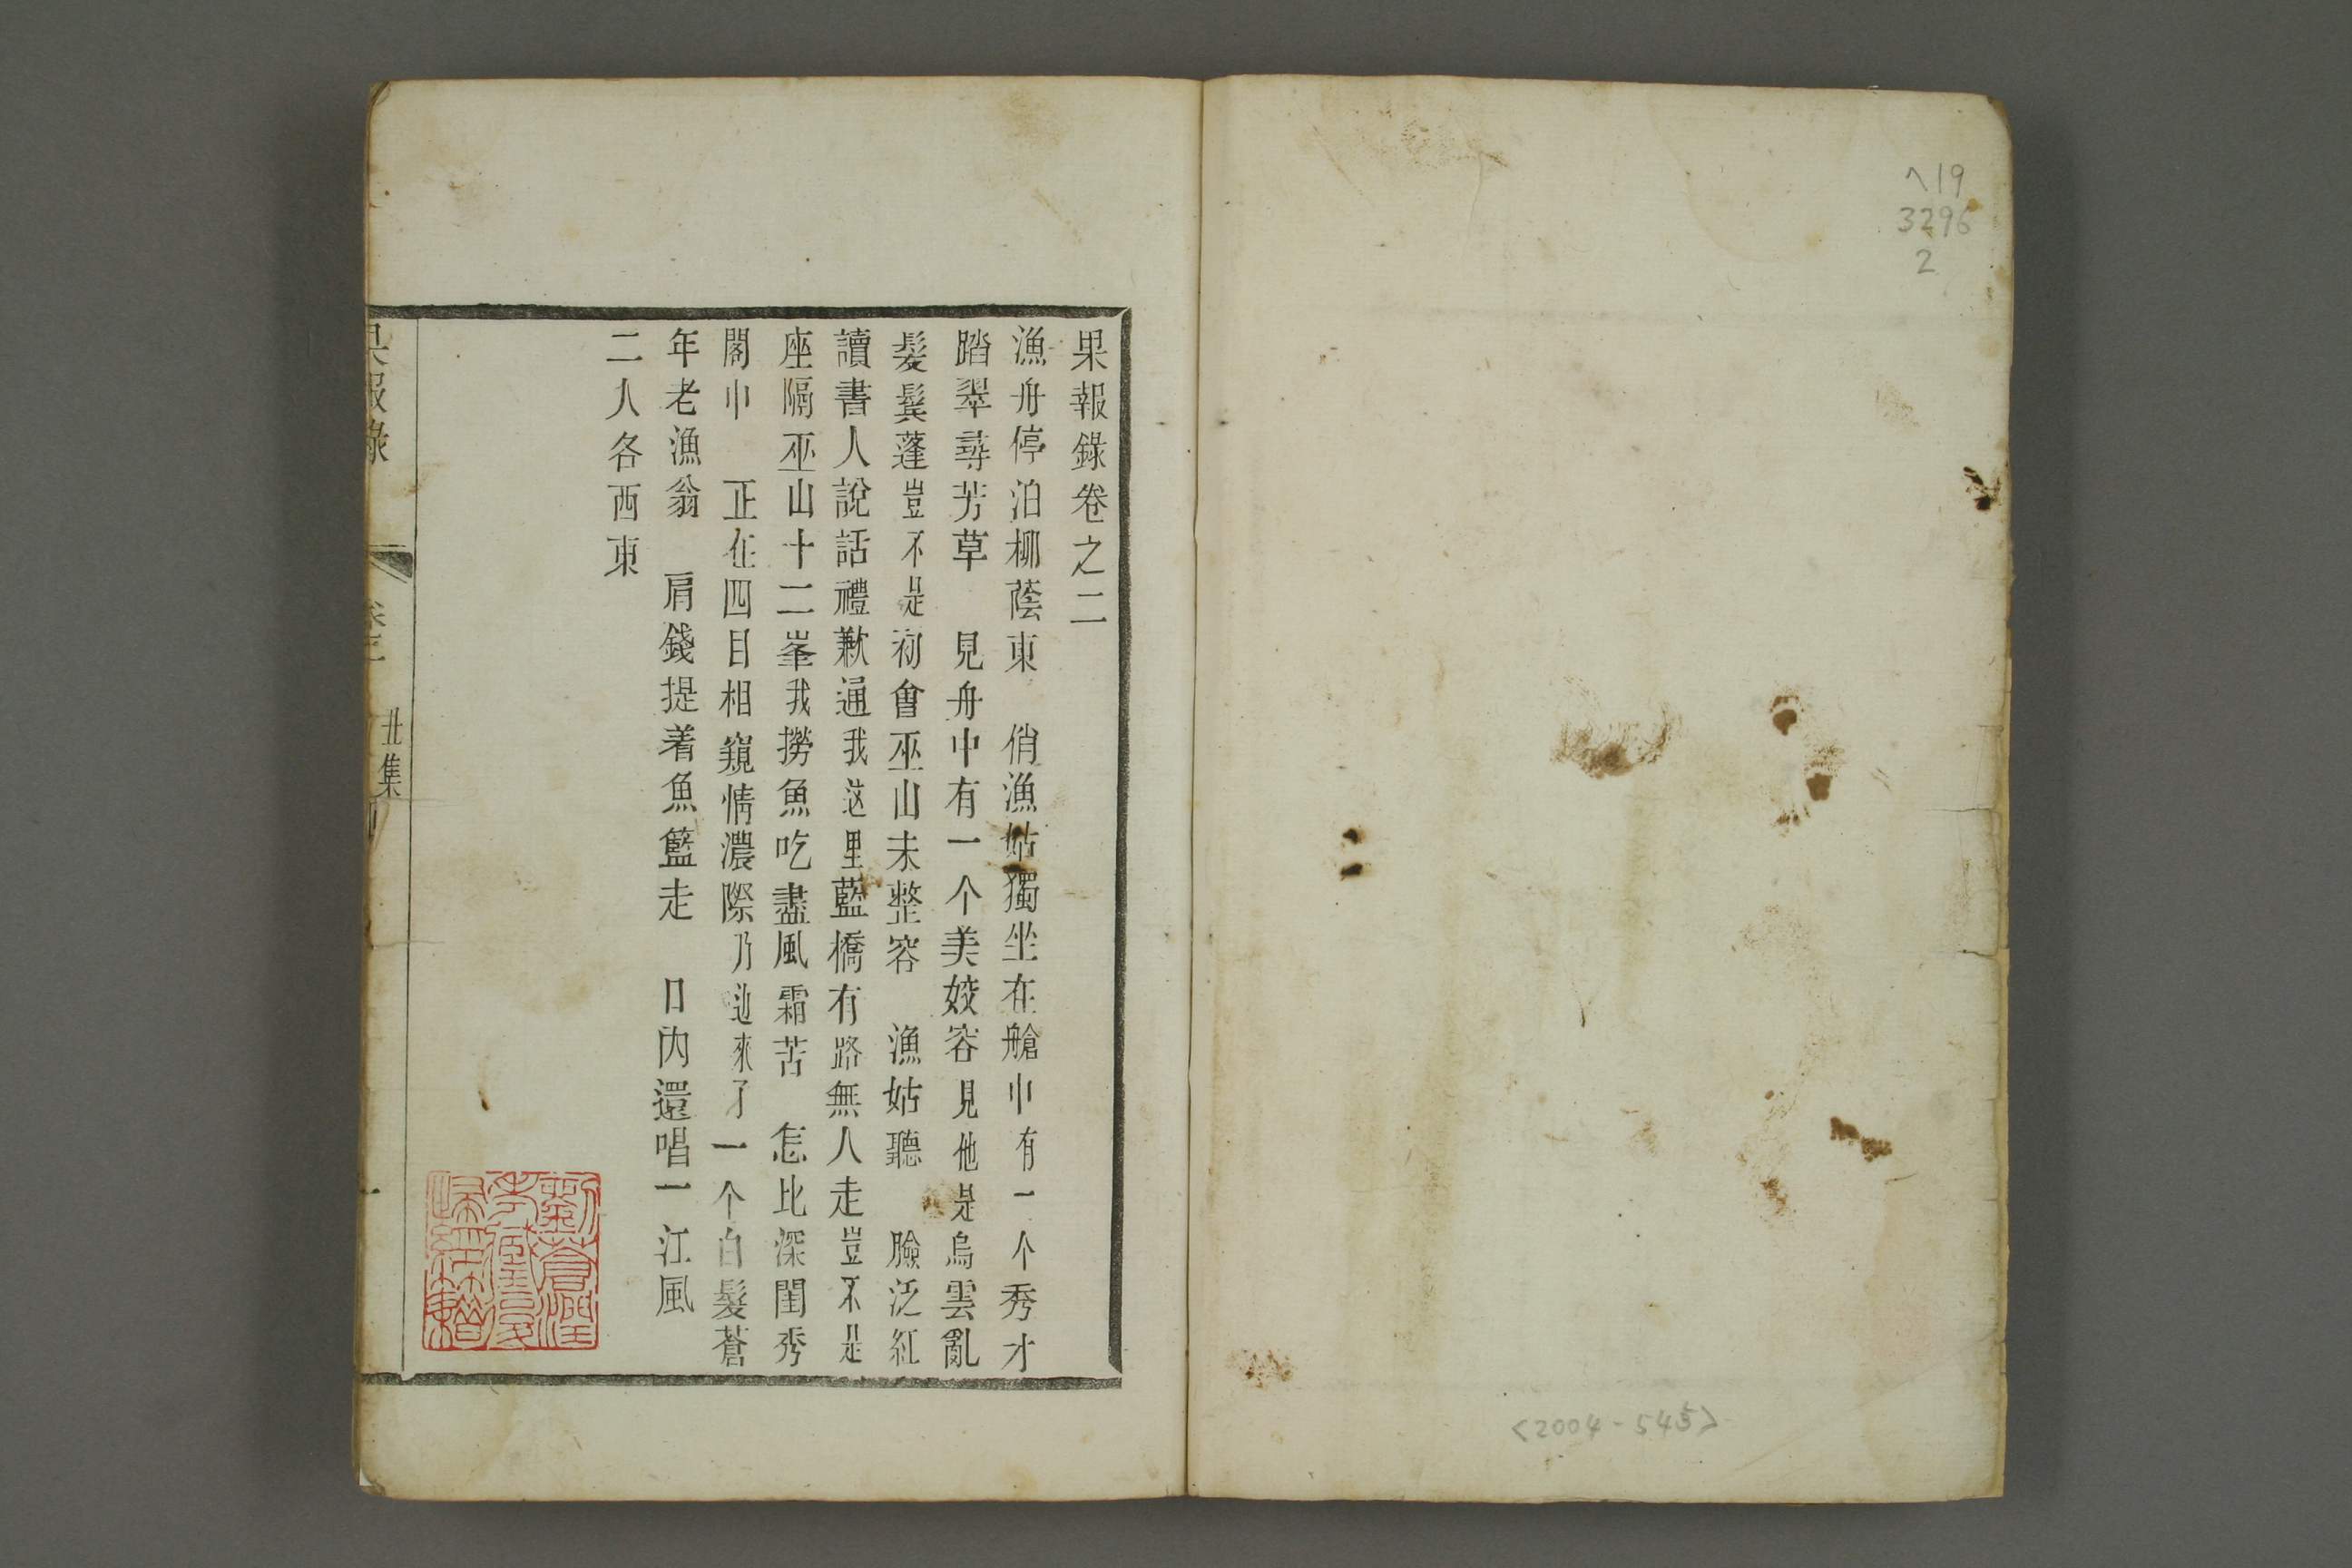 ヘ19
3296
2
<2004-545>
果報錄卷之二
漁舟停泊柳蔭東　俏漁姑獨坐在艙中有一个秀才
踏翠尋芳草　見舟中有一个美姣容見他是烏雲亂
髮鬓蓬豈不是初會巫山未整容　漁姑聽　臉泛紅
讀書人說話禮歉通我这里藍橋有路無人走豈不是
座隔巫山十二峯我撈魚吃盡風霜苦　怎比深閨秀
閣中　正在四目相窺情濃際乃邉來了一个白髮蒼
年老漁翁　肩錢提着魚籃走　口内還唱一江風
二人各西東
果報錄
卷二
丑集
一